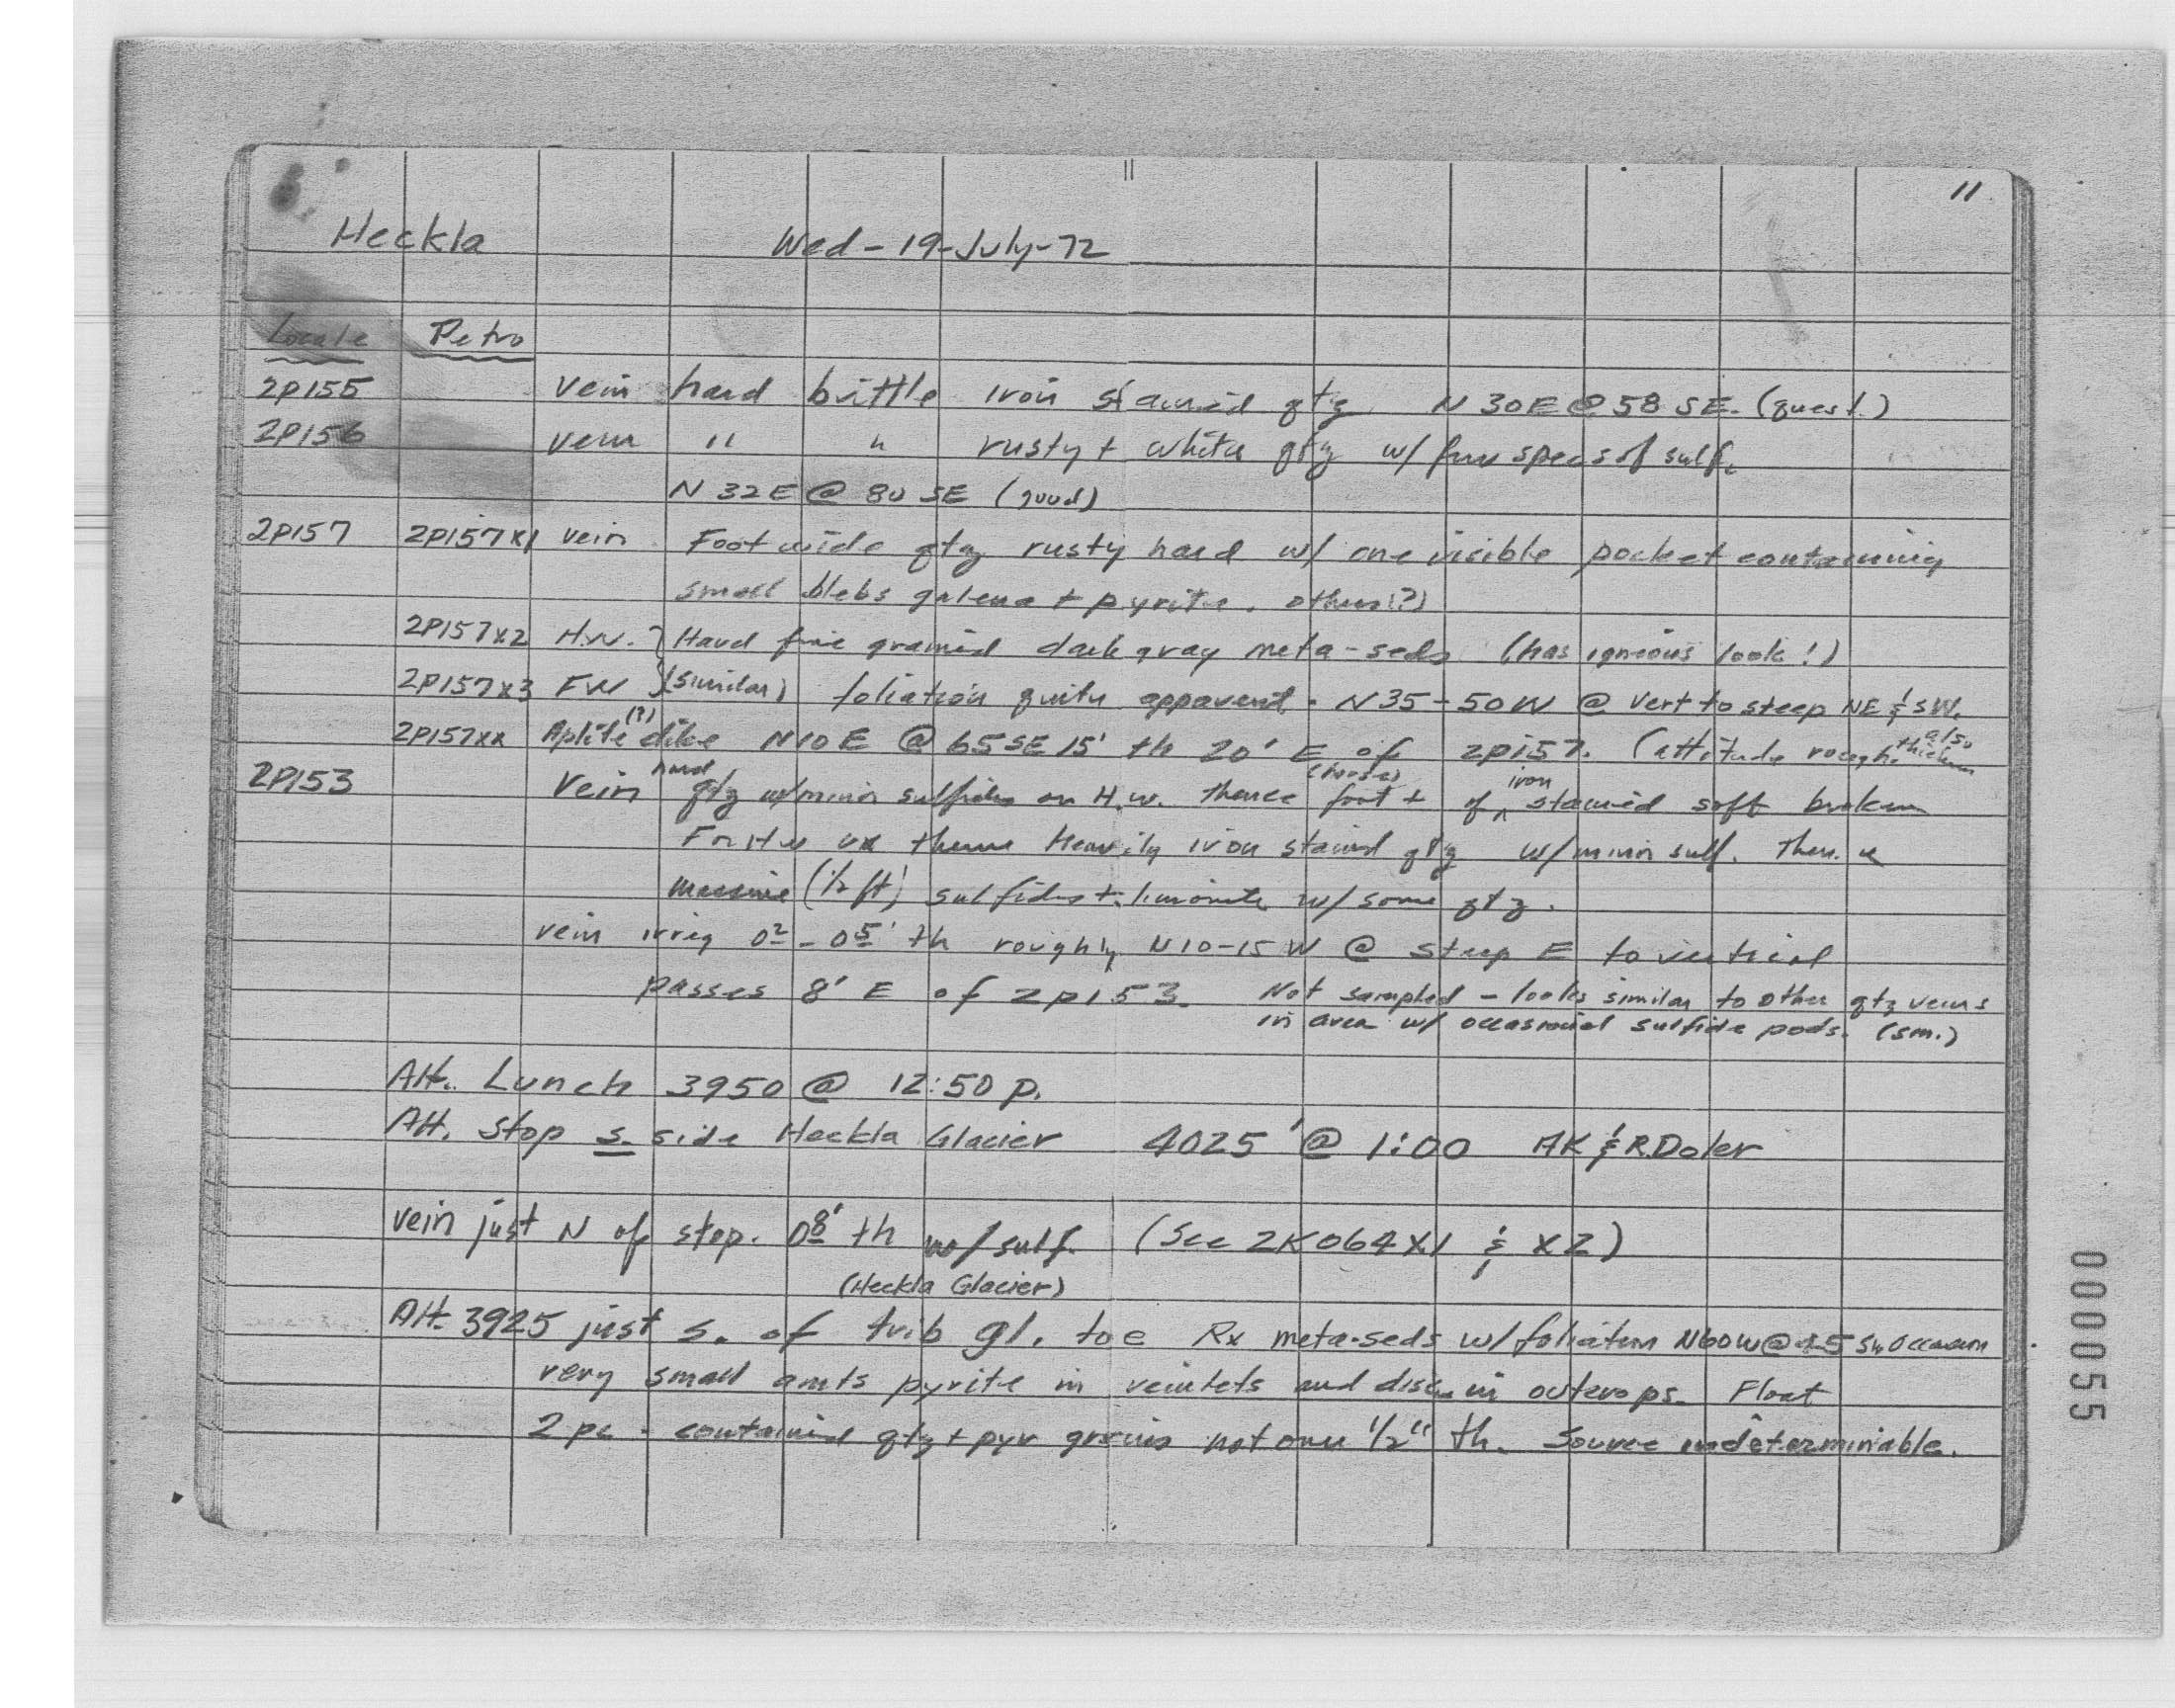 11
Heckla Wed-19-July-72
Locale Petro
2P155 vein hard brittle iron stained qtz N 30E @ 58 SE. (quest.)
2P156 vein " " rusty + white qtz w/ few specs of sulf.
N 32E @ 80 SE (good)
2P157 2P157X1 vein Foot wide qtz rusty hard w/ one visible pocket containing
small blebs galena + pyrite. others(?)
2P157X2 H.W. } Hard fine grained dark gray meta-seds (has igneous look!)
2P157X3 FW } (similar) foliation quite apparent. N35-50W @ Vert to steep NE & SW.
2P157XX Aplite (?) dike N10E @ 65SE 15' th 20' E of 2P157. (attitude rough. also thickness
2P153 Vein hard qtz w/minor sulfides on H.W. thence foot + of iron stained soft broken
thence Heavily iron stained qtz w/minor sulf. Thence
massive (1/2 ft) sulfides + limonite w/ some qtz.
vein irreg 0²-0⁵' th roughly N10-15W @ steep E to vertical
passes 8' E of 2P153. Not sampled - looks similar to other qtz veins
in area w/ occasional sulfide pods. (sm.)
Alt. Lunch 3950 @ 12:50 p.
Alt. Stop S. side Heckla Glacier 4025' @ 1:00 AK & R.Doler
vein just N of stop. 0⁸' th w/ sulf. (See 2K064X1 & X2)
(Heckla Glacier)
Alt. 3925 just S. of trib gl. toe Rx meta-seds w/foliation N60W@
very small amts pyrite in veinlets and diss. in outcrops. Float
2 pc. contained qtz + pyr grains not over 1/2" th. Source indeterminable.
000055